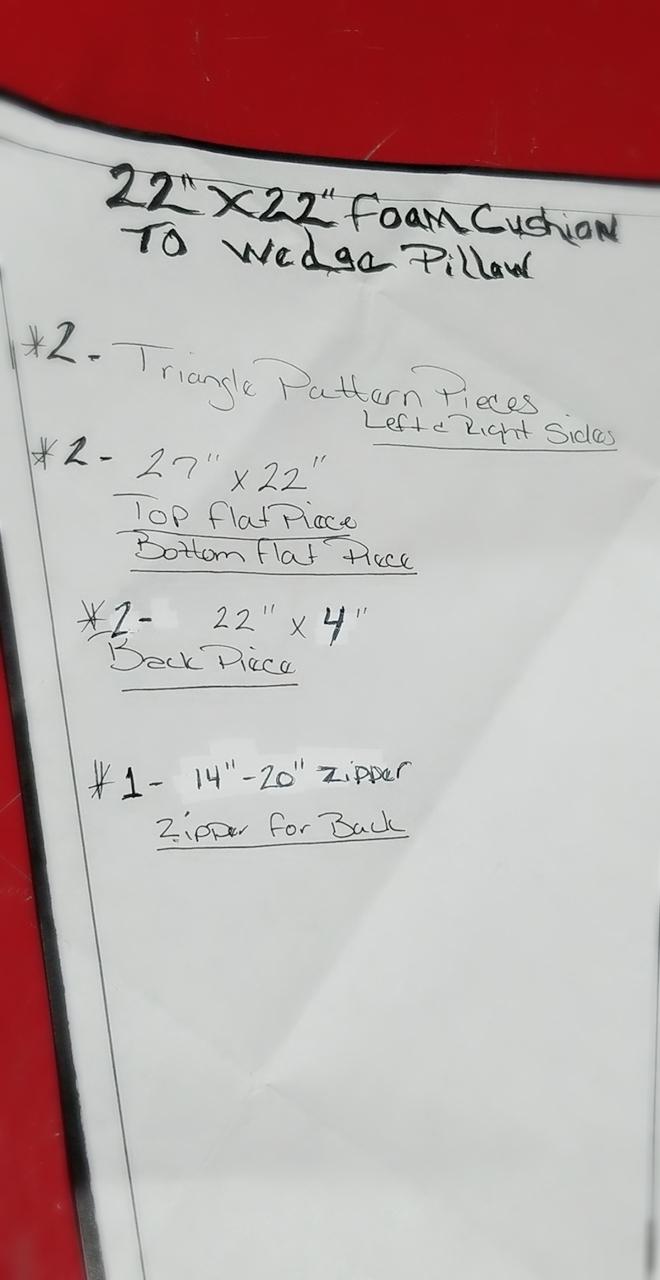 22" X 22" Foam Cushion
To Wedge Pillow
*2- Triangle Pattern Pieces
Left & Right Sides
*2- 27" x 22"
Top flat Piece
Bottom flat Piece
*2- 22" x 4"
Back Piece
#1- 14"-20" Zipper
Zipper for Back